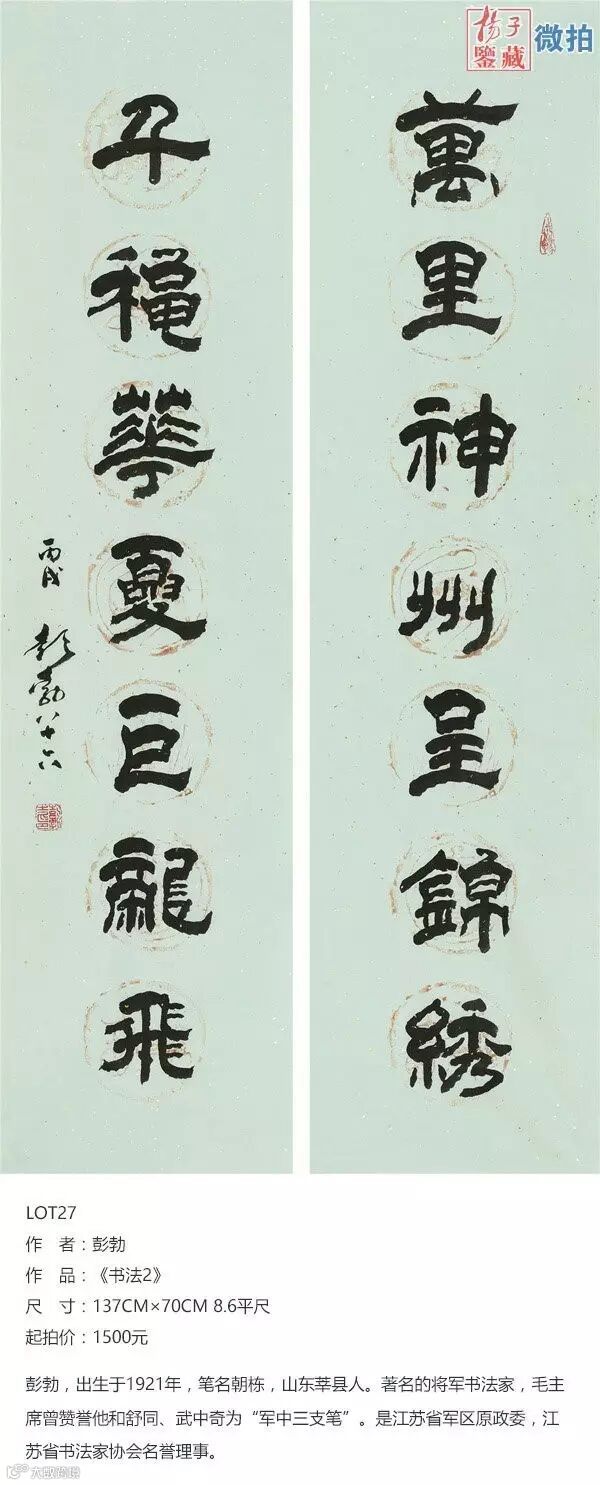 揚子
鑒藏
微拍
萬里神州呈錦綉
福華夏巨龍飛
丙戌 彭勃八十六
LOT27
作 者：彭勃
作 品：《书法2》
尺 寸：137CM×70CM 8.6平尺
起拍价：1500元
彭勃，出生于1921年，笔名朝栋，山东莘县人。著名的将军书法家，毛主
席曾赞誉他和舒同、武中奇为“军中三支笔”。是江苏省军区原政委，江
苏省书法家协会名誉理事。
大数跨境